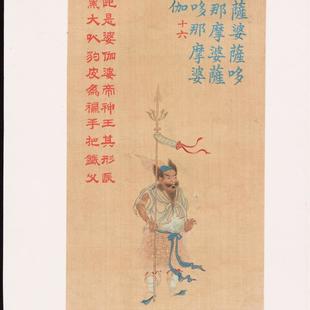 薩婆薩哆
那摩婆薩
哆那摩婆
伽
十六
此是婆伽婆帝神王其形
黑大以豹皮為手把鐵叉